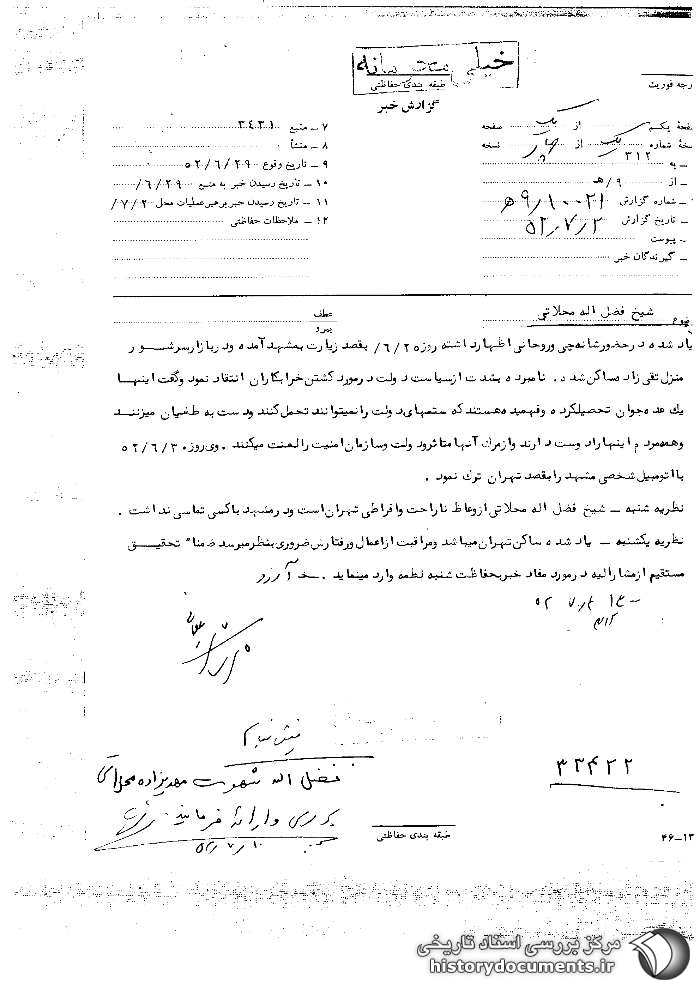 خیلی محرمانه
طبقه بندی حفاظتی
گزارش خبر
رجه فوریت
فحهٔ یکم از یک صفحه
خهٔ شماره یک از چهار نسخه
ـ به ۳۱۲
ـ از ۹/هـ
ـ شماره گزارش ۱۰۰۲۱/۹ه
ـ تاریخ گزارش ۵۲/۷/۲
ـ پیوست
ـ گیرندگان خبر
۷ ـ منبع ۳۴۳۱
۸ ـ منشأ
۹ ـ تاریخ وقوع ۵۲/۶/۲۹
۱۰ ـ تاریخ رسیدن خبر به منبع ۶/۲۹/
۱۱ ـ تاریخ رسیدن خبر برهبر عملیات محل ۷/۲/
۱۲ ـ ملاحظات حفاظتی
شیخ فضل اله محلاتی
عطف
پیرو
یاد شده در حضور شانه‌چی وروحانی اظهارداشته روز ۶/۲۵/ بقصد زیارت بمشهد آمده ودربازارسرشور
منزل تقی زاده ساکن شده. نامبرده بشدت ازسیاست دولت درمورد کشتن خرابکاران انتقاد نمود وگفت اینها
یك عده جوان تحصیلکرده وفهمیده هستند که ستمهای دولت را نمیتوانند تحمل کنند ودست به طغیان میزنند
وهمه مردم اینهاراد وست دارند وازمرگ آنها متاثرودولت وسازمان امنیت رالعنت میکنند. وی روز ۵۲/۶/۳۰
بااتومبیل شخصی مشهد را بقصد تهران ترك نمود.
نظریه شنبه ـ شیخ فضل اله محلاتی ازوعاظ ناراحت وافراطی تهران است ودرمشهد باکسی تماسی نداشت.
نظریه یکشنبه ـ یاد شده ساکن تهران میباشد ومراقبت ازاعمال ورفتارش ضروری بنظرمیرسد ضمنا" تحقیق
مستقیم ازمشارالیه درمورد مفاد خبربحفاظت شنبه لطمه وارد مینماید. آرزو
فضل اله شهرت مهدیزاده محلاتی
بررسی وارائه فرمایند.
۵۲/۷/۱۰
۳۳۴۲۲
طبقه بندی حفاظتی
۴۶ــ۱۳
مرکز بررسی اسناد تاریخی
historydocuments.ir